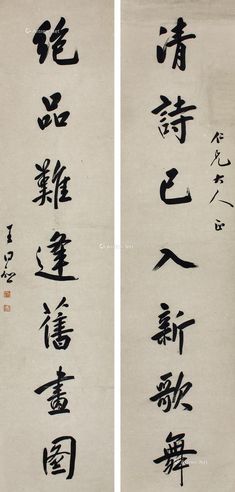 仁兄大人正
清詩已入新歌舞
絕品難逢舊畫圖
王